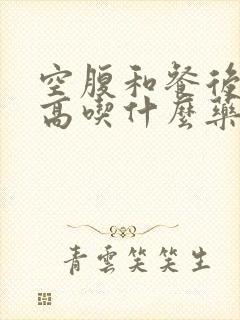 空腹和餐後
高喫什麼藥
青雲笑笑生